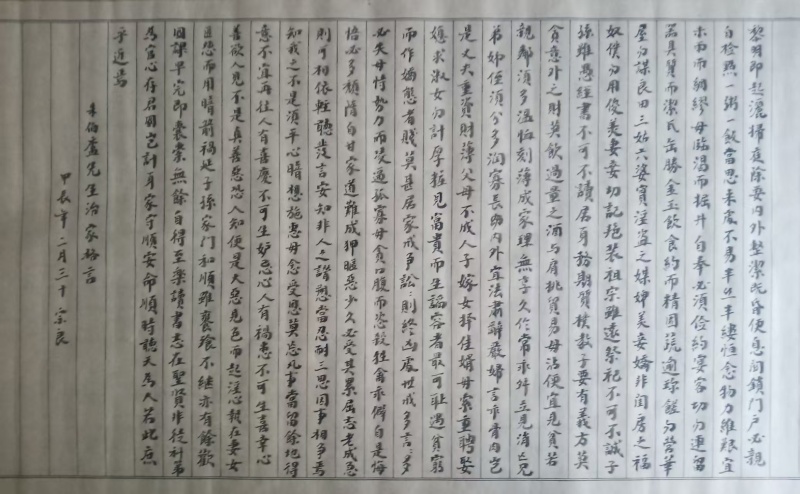 黎明即起灑掃庭除要内外整潔既昏便息関鎖門户必親
自檢點一粥一飯當思來處不易半絲半縷恒念物力維艱宜
未雨而綢繆毋臨渴而掘井自奉必須儉約宴客切勿連留
器具質而潔瓦缶勝金玉飲食約而精園蔬逾珍饈勿營華
屋勿謀良田三姑六婆實淫盜之媒婢美妾嬌非閨房之福
奴僕勿用俊美妻妾切記艳装祖宗雖遠祭祀不可不誠子
孫雖愚經書不可不讀居身務期質樸教子要有義方莫
貪意外之財莫飲過量之酒与肩挑貿易毋沾便宜見貧苦
親鄰須多温恤刻薄成家理無享久倫常乖舛立見消亡兄
弟姊侄須分多潤寡長幼内外宜法肅辭嚴婦言乖骨肉豈
是丈夫重資財薄父母不成人子嫁女擇佳婿毋索重聘娶
媳求淑女勿計厚奩見富貴而生諂容者最可耻遇貧窮
而作嬌態者賤莫甚居家戒争訟訟則終凶處世戒多言言多
必失毋恃勢力而凌逼孤寡毋貪口腹而恣殺牲禽乖僻自是悔
悟必多頹惰自甘家道難成狎暱惡少久必受其累屈志老成急
則可相依輕聽發言安知非人之譖愬當忍耐三思因事相争焉
知我之不是須平心暗想施惠毋念受恩莫忘凡事當留餘地得
意不宜再往人有喜慶不可生妒忌心人有禍患不可生喜幸心
善欲人見不是真善惡恐人知便是大惡見色而起淫心報在妻女
匿怨而用暗箭禍延子孫家門和順雖饔飧不繼亦有餘歡
國課早完即囊橐無餘自得至樂讀書志在聖賢非徒科第
為官心存君國豈計身家守順安命順時聽天為人若此庶
乎近焉
朱伯盧先生治家格言
甲辰年二月三十 宗良